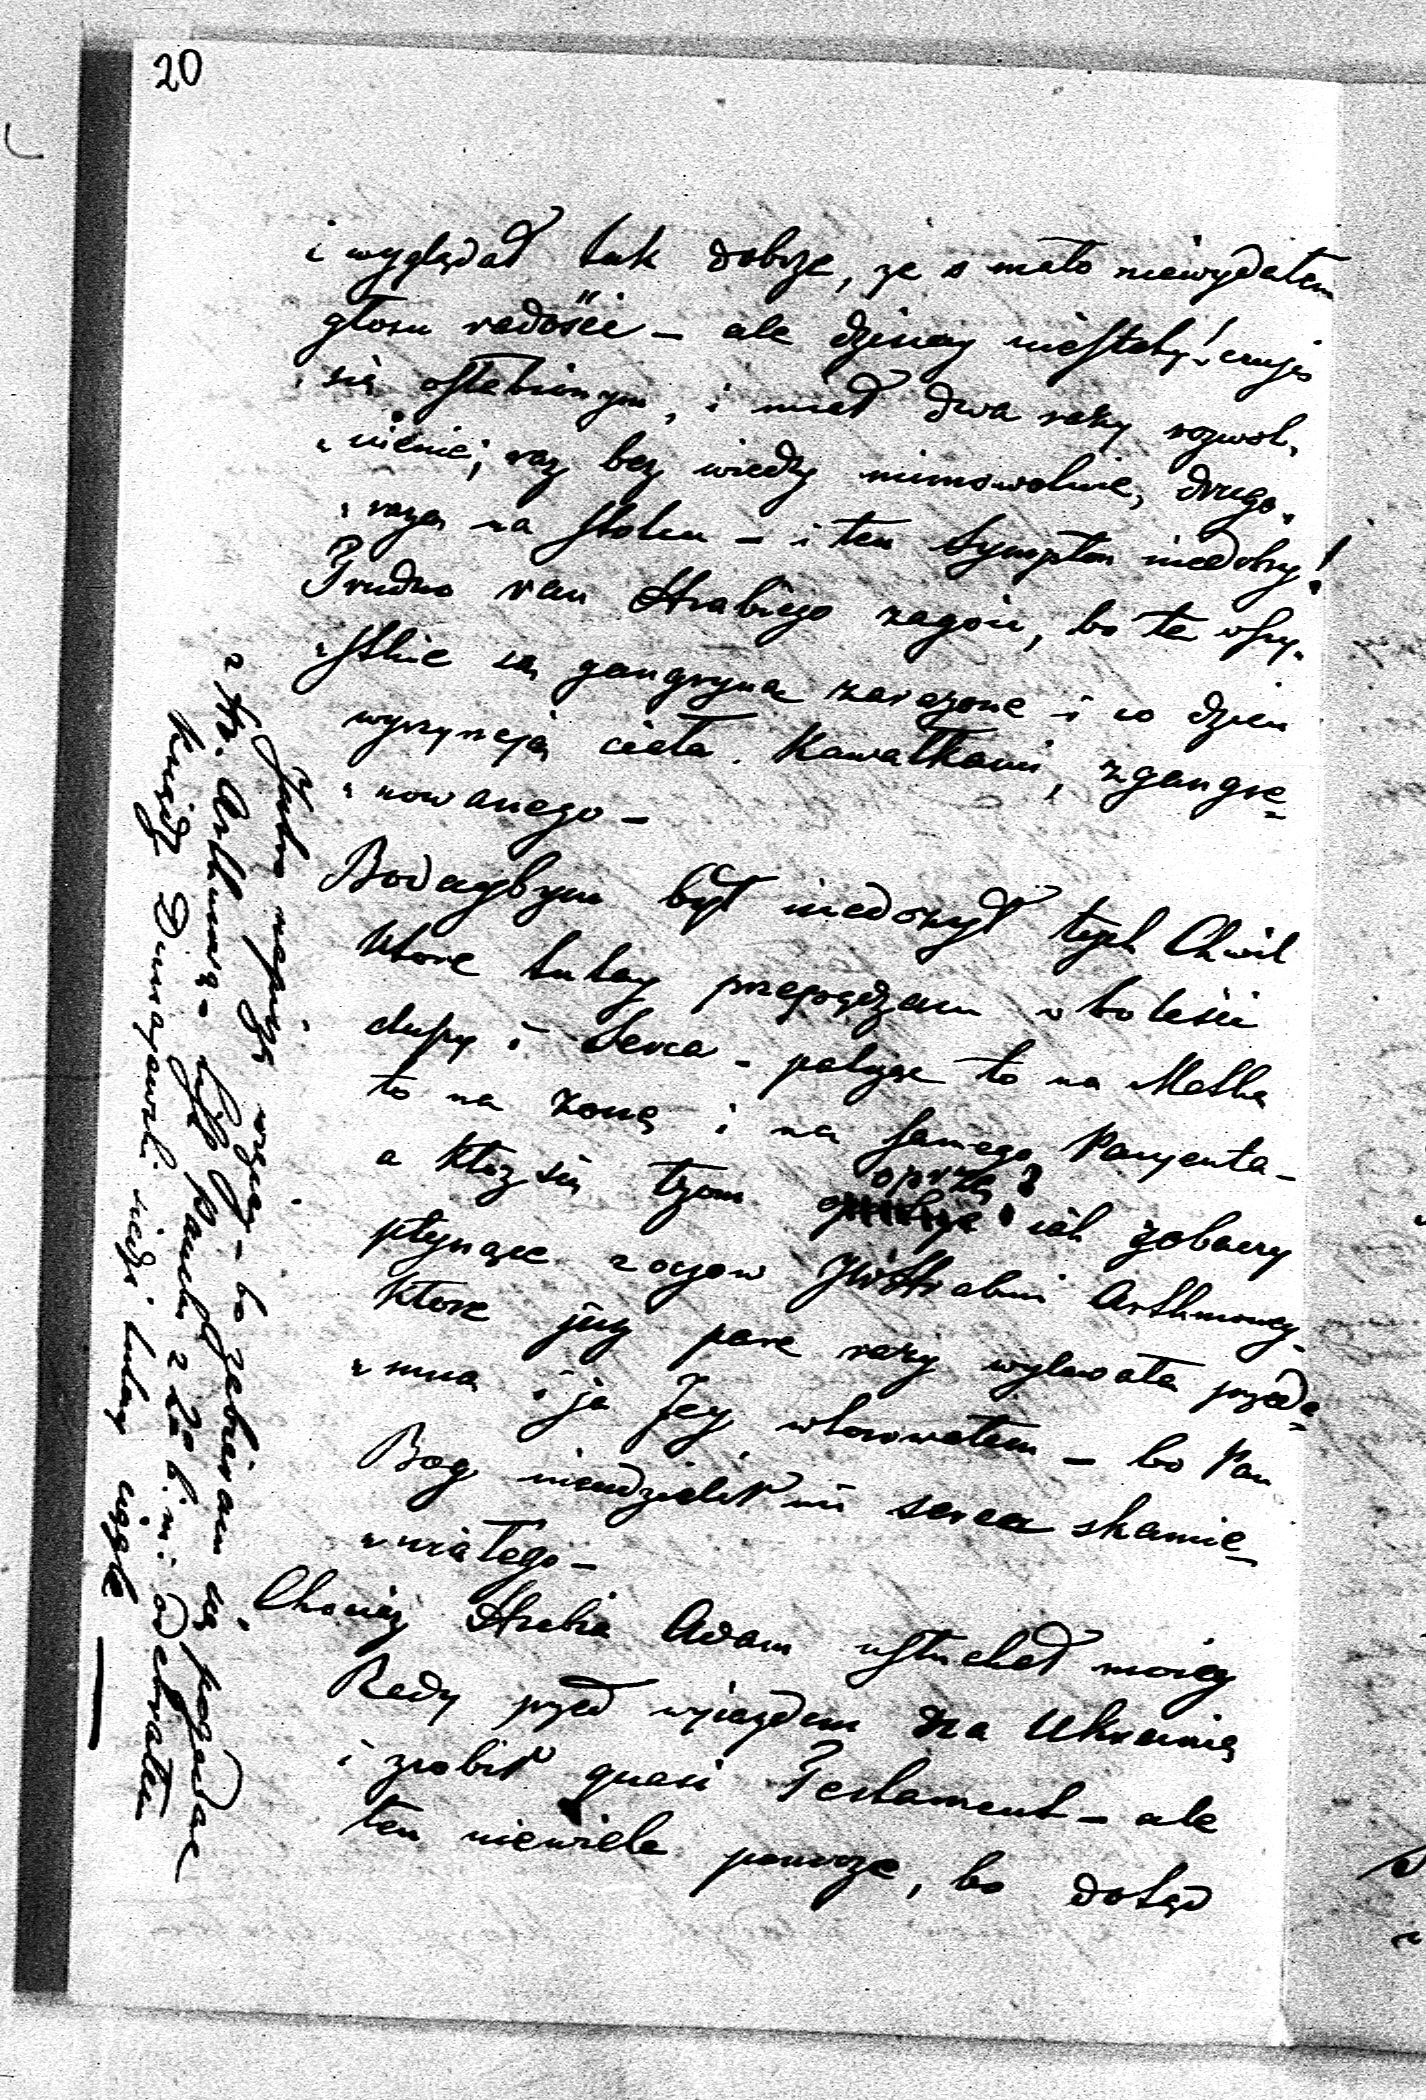 20
i wyglądał tak dobrze, że o mało niewydałem
głosu radości – ale dzisiay niestety! czuje
się osłabionym, i miał dwa razy rozwol,
„nienie; raz bez wiedzy mimowolnie, drugo„
„razą na stolcu – i ten Sympton niedobry!
Trudno ran Hrabiego zagoić, bo te wszy„
„stkie są gangryną zarażone i co dzień
wyrzynają ciała kawałkami, zgangre=
„nowanego –
Bodaybym był niedożył tych Chwil
które tutay przepędzam w boleści
duszy i Serca – patrząc to na Matkę
to na żonę i na samego Pacyenta –
a któż się łzom oprze? jak zobaczy
płynące z oczow JWHrabini Arthurowey
które już parę razy wylewała przede=
„mną i ja Jey wtorowałem – bo Pan
Bog nieudzielił mi serca skamie=
„niałego –
Chociaż Hrabia Adam usłuchał moiey
Rady przed wyiazdem na Ukrainię
i zrobił quasi Testament – ale
ten niewiele pomoże, bo dotąd
Jutro napiszę więcey – bo zabieram się pogadać
z Hr. Arthurową – list pański z 20 b. m. odebrałem
Ksiądz siedzi tutay ciągle